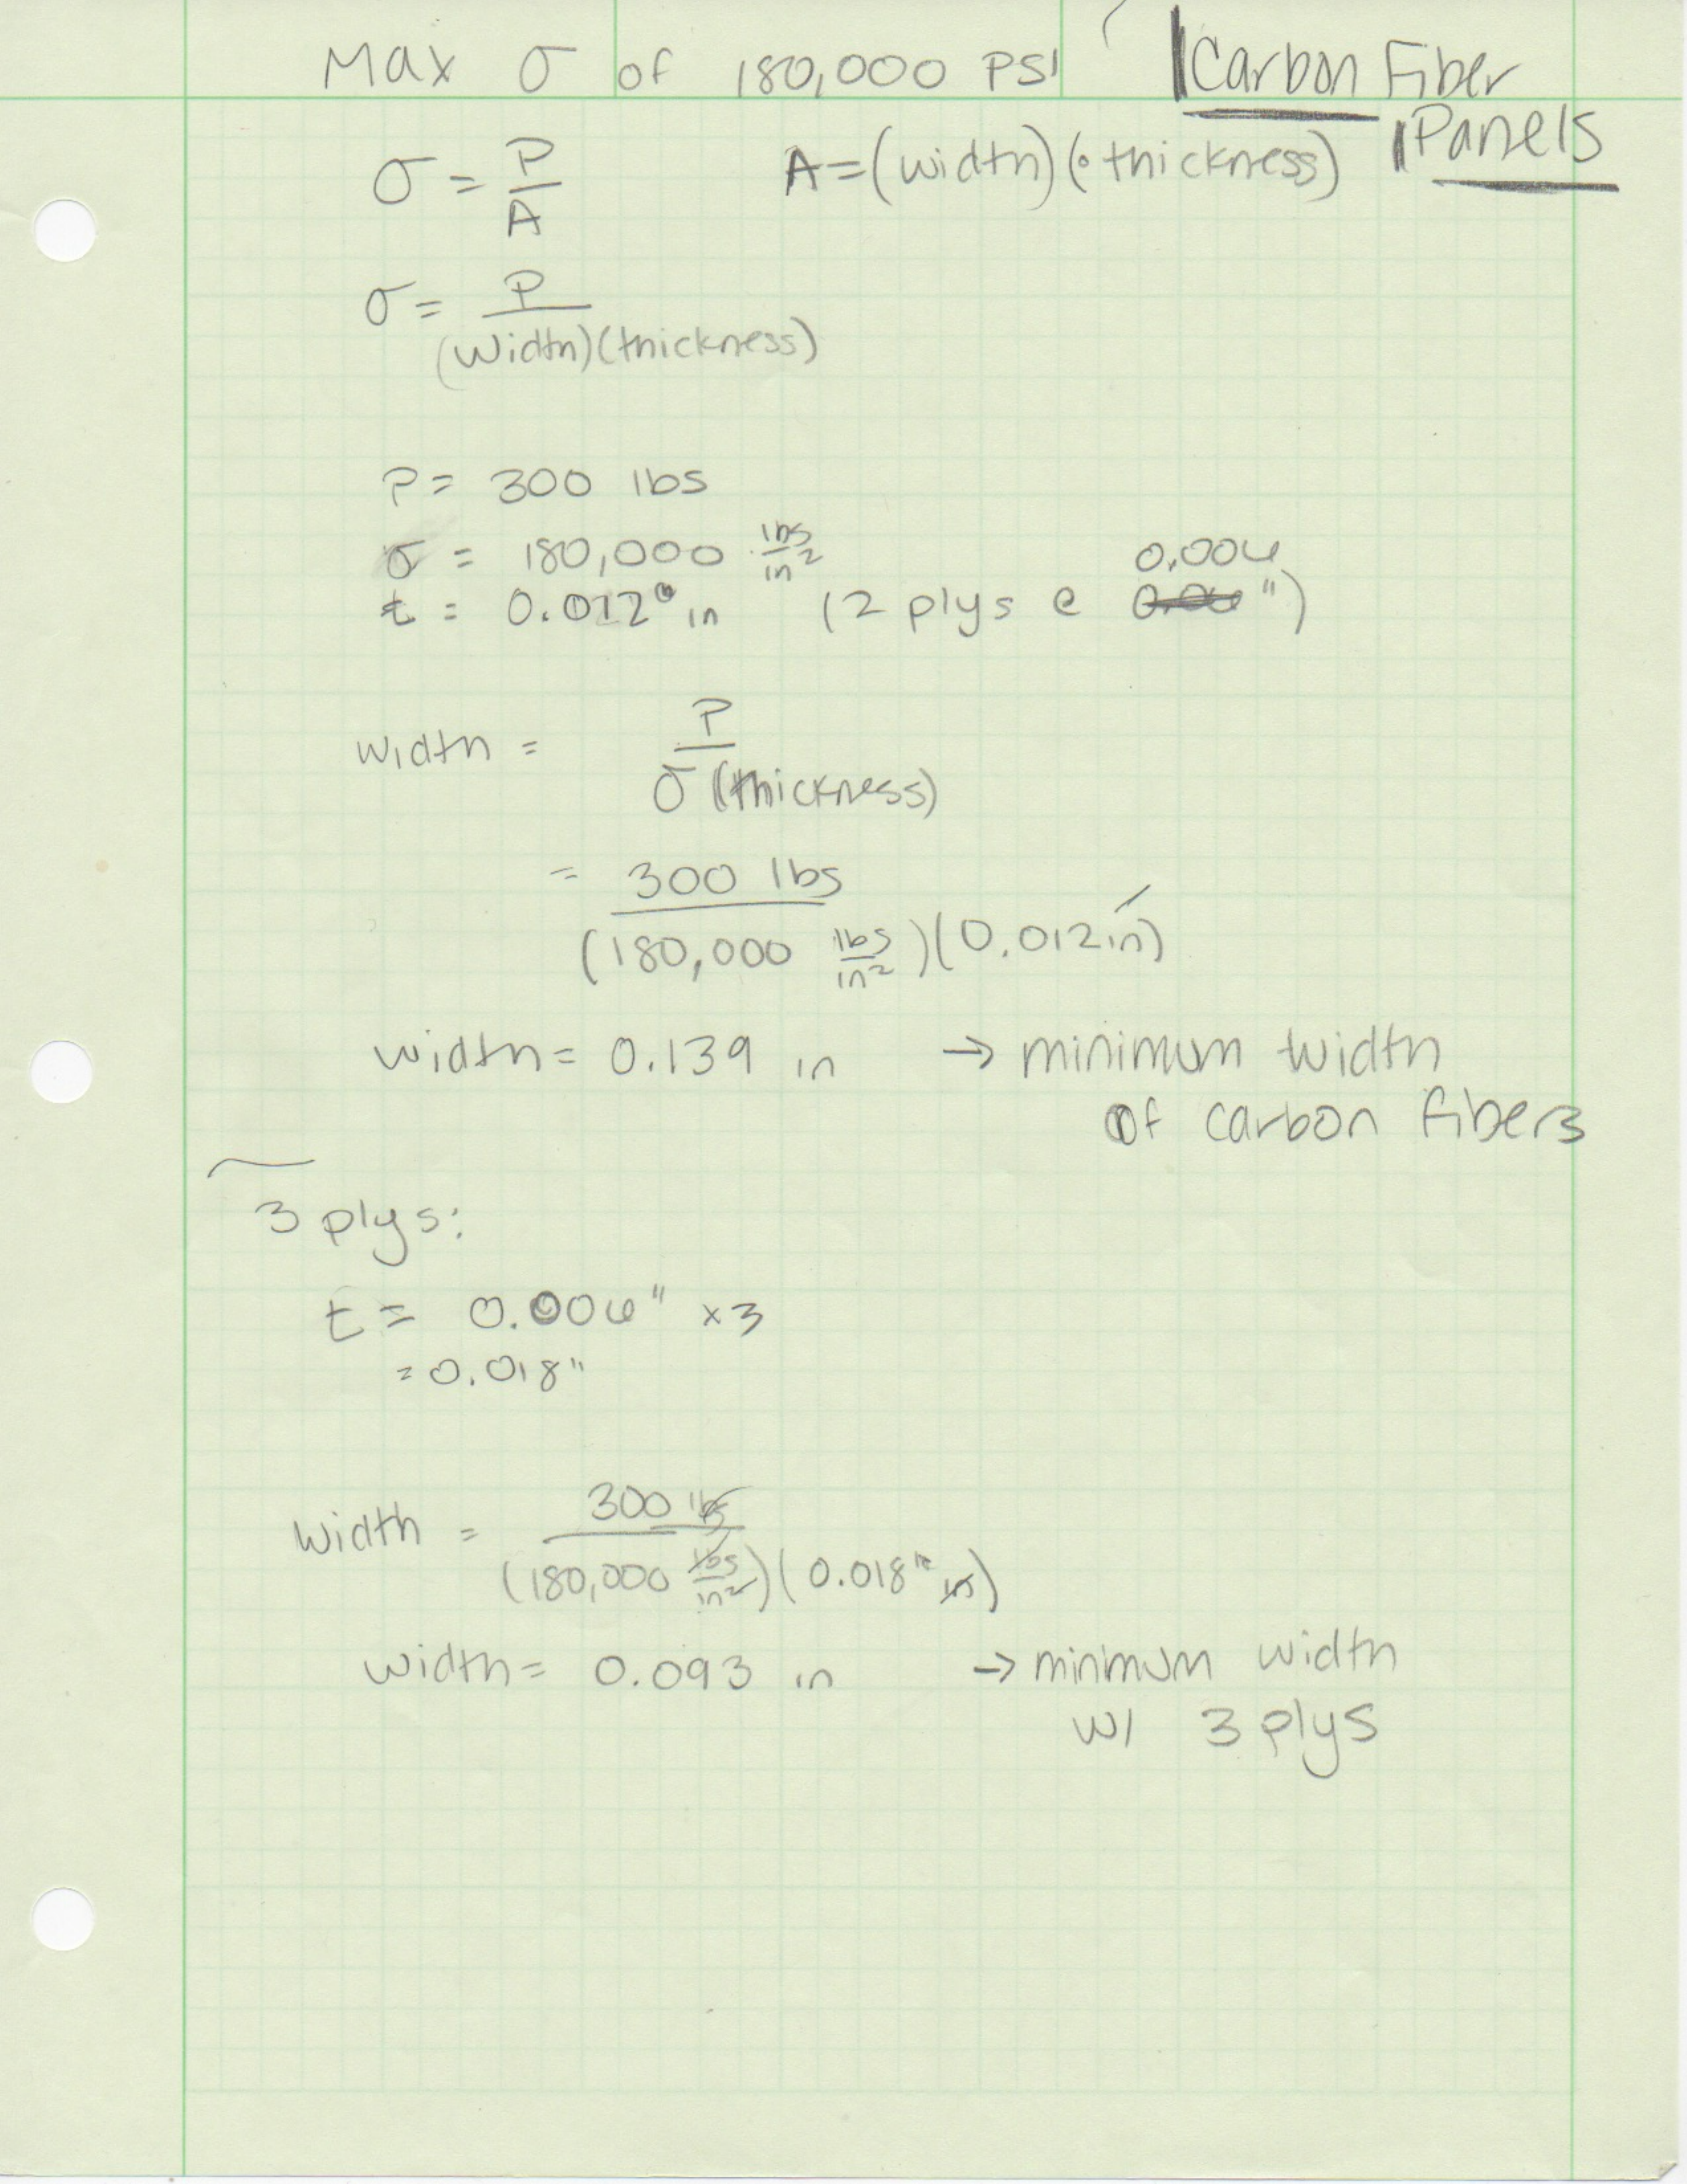 Max σ of 180,000 PSI
Carbon Fiber
Panels
σ = P/A
A = (width)(thickness)
σ = P/(width)(thickness)
P = 300 lbs
σ = 180,000 lbs/in²
t = 0.012 in (2 plys @ 0.006")
width = P/σ(thickness)
= 300 lbs/(180,000 lbs/in²)(0.012in)
width = 0.139 in → minimum width
of carbon fibers
3 plys:
t = 0.006" x3
= 0.018"
width = 300 lbs/(180,000 lbs/in²)(0.018 in)
width = 0.093 in → minmum width
w/ 3 plys